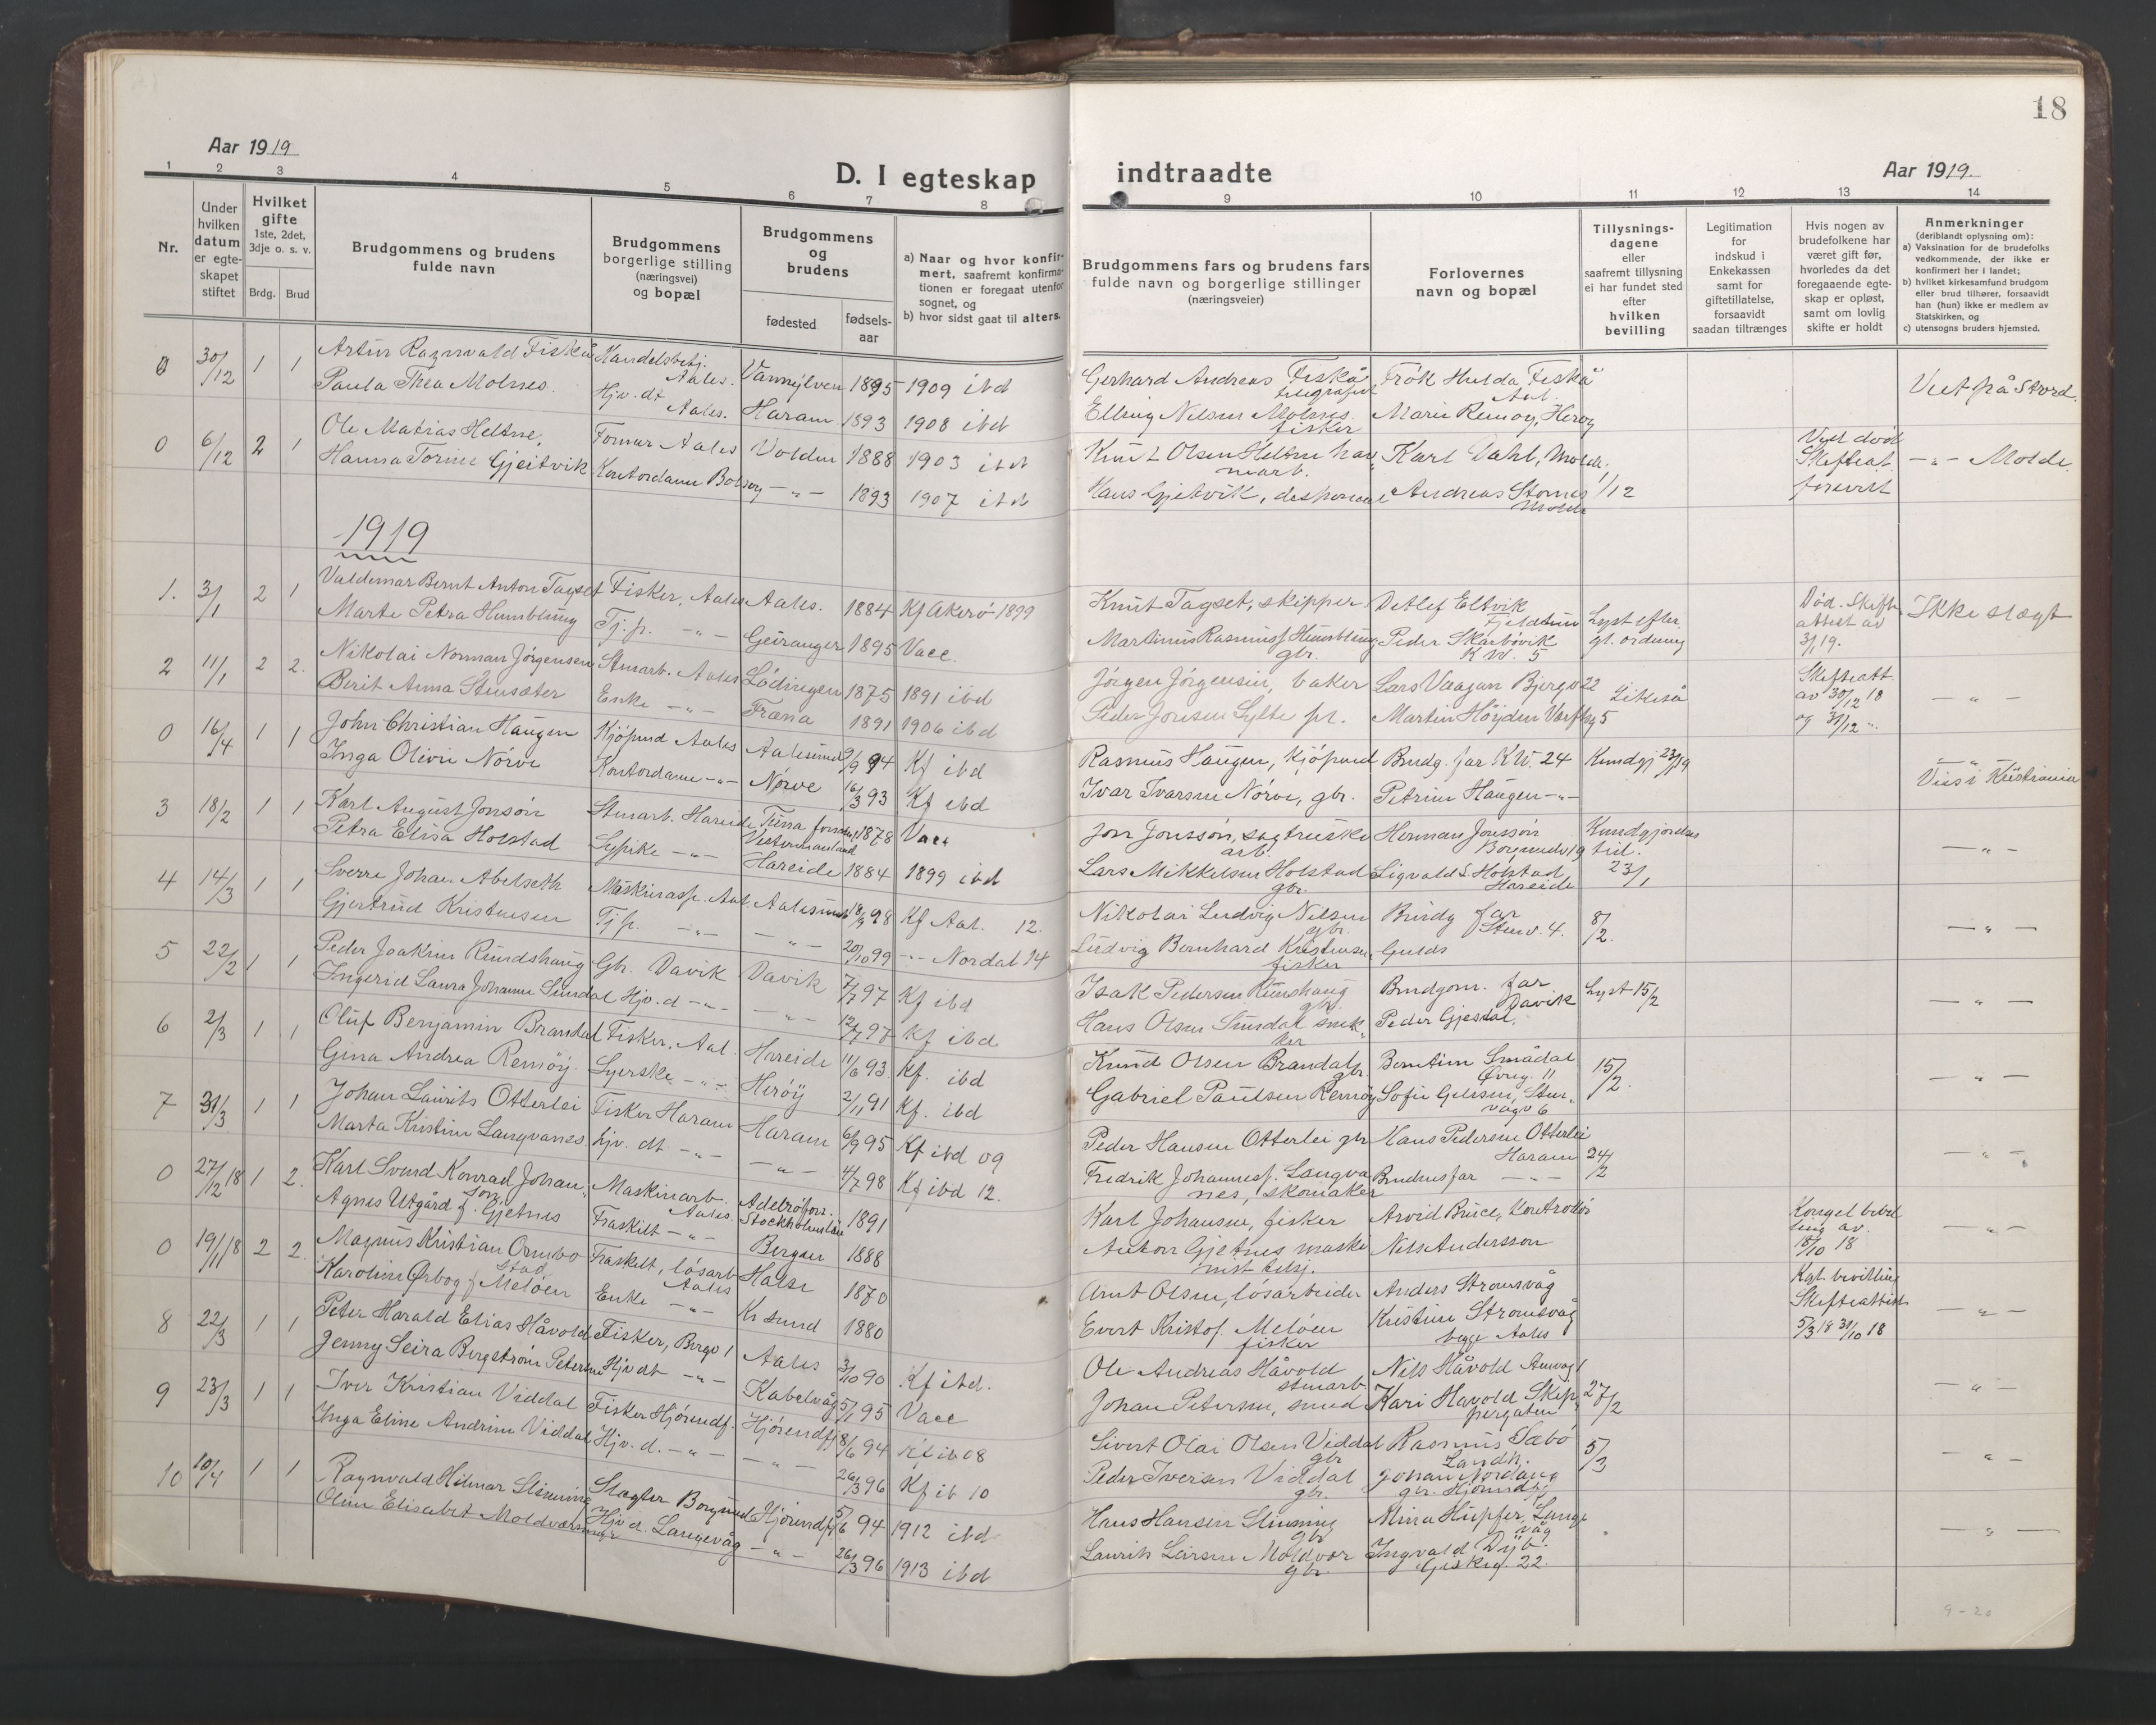 18
Aar 1919
Aar 1919
D. I egteskap indtraadte
1 2 3 4 5 6 7 8 9 10 11 12 13 14
Nr.
Under hvilken datum er egteskapet stiftet
Hvilket gifte 1ste, 2det, 3dje o. s. v.
Brdg. Brud
Brudgommens og brudens fulde navn
Brudgommens borgerlige stilling (næringsvei) og bopæl
Brudgommens og brudens
fødested
fødselsaar
a) Naar og hvor konfirmert, saafremt konfirmationen er foregaat utenfor sognet, og
b) hvor sidst gaat til alters.
Brudgommens fars og brudens fars fulde navn og borgerlige stillinger (næringsveier)
Forlovernes navn og bopæl
Tillysningsdagene eller saafremt tillysning ei har fundet sted efter hvilken bevilling
Legitimation for indskud i Enkekassen samt for giftetillatelse, forsaavidt saadan tiltrænges
Hvis nogen av brudefolkene har været gift før, hvorledes da det foregaaende egteskap er opløst, samt om lovlig skifte er holdt
Anmerkninger (deriblandt oplysning om):
a) Vaksination for de brudefolks vedkommende, der ikke er konfirmert her i landet;
b) hvilket kirkesamfund brudgom eller brud tilhører, forsaavidt han (hun) ikke er medlem av Statskirken, og
c) utensogns bruders hjemsted.
0 30/12 1 1 Artur Ragnvald Fiskå Handelsbetj. Aales. Vannylven 1895 1909 ibd Gerhard Andreas Fiskå telegrafist Frøk Hulda Fiskå Aal. Viet på Stord.
Paula Thea Molnes. Hjv. dt Aales. Haram 1893 1908 ibd Elling Nilsen Molnes. fisker Marie Remøy, Herøy
0 6/12 2 1 Ole Matias Heltne, Former Aales Volden 1888 1903 ibd Knut Olsen Heltne Karl Dahl, Molde, Skifteat. forevist -"- Molde.
Hanna Torine Gjeitvik Kontordame Bolsøy -"- 1893 1907 ibd Hans Gjeitvik, Andreas Stornes Molde 1/12
1919
1. 3/1 2 1 Valdemar Bernt Anton Tagset Fisker, Aales Aales. 1884 Kf Akerö 1899 Knut Tagset, skipper Detlef Eltvik Lyst efter gl. ordning Død. Skifteattest av 3/1 19. Ikke slegt
Marte Petra Humblung Tj. p. -"- Geiranger 1895 Vacc. Martinus Rasmuss Humblung gbr. Peder Skarbövik K W. 5
2 11/1 2 2. Nikolai Norman Jörgensen Stuearb. Aales Lödingen 1875 1891 ibd Jörgen Jörgensen, baker Lars Vaagan Bjergv 22 Likeså Skifteatt. av 30/12 18 -"-
Berit Anna Stensæter Enke -"- Fræna 1891 1906 ibd Peder Jonsen Sylte Martin Höydn 5 og 31/12 "
0 16/4 1 1 John Christian Haugen Kjöpmd Aales Aalesund 9/9 94 Kf ibd Rasmus Haugen, Kjöpmd Brudg. far K W. 24 Kundgj 23/3 19 -"- Vies i Kristiania
Inga Olivie Nörve Kontordame -"- Nörve 16/3 93 Kf ibd Ivar Ivarsen Nörve, gbr. Petrine Haugen -"-
3 18/2 1 1 Karl August Jonsön Stuarb. Hareide Vestermanland 1878 Vacc Jon Jonssön, arb. Herman Jonssön Borgundv 19 Kundgjordes tid. 23/1 -"-
Petra Elisa Holstad Syerske -"- Hareide 1884 1899 ibd Lars Mikkelsen Holstad gbr. Sigvald S. Holstad Hareide
4 14/3 1 1 Sverre Johan Abelseth Maskinass. Aal. Aalesund 18/9 98 Kf Aal. 12. Nikolai Ludvig Nilsen gbr. Brudg far Stenv. 4. 8/2. -"-
Gjertrud Kristensen Tj p. -"- -"- 20/10 99 -"- Nordal 14 Ludvig Bernhard Kristensen fisker Gulds
5 22/2 1 1 Peder Joakim Rundshaug Gbr. Davik Davik 7/7 97 Kf ibd Isak Pedersen Rundshaug gbr. Brudgom. far Davik Lyst 15/2 -"-
Ingerid Laura Johanne Sundal Hjv. d -"- -"- 12/7 97 Kf ibd Hans Olsen Sundal snekker Peder Gjesdal.
6 2/3 1 1 Oluf Benjamin Brandal Fisker. Aal. Hareide 11/6 93 Kf. ibd Knud Olsen Brandal gbr. Berntine Smådal Øvreg. 11 15/2. -"-
Gina Andrea Remöy. Syerske -"- Heröy 2/11 91 Kf. ibd Gabriel Paulsen Remöy Sofie Gilisen, Stenvågv 6
7 31/3 1 1 Johan Laurits Otterlei Fisker Haram Haram 6/9 95 Kf ibd 09 Peder Hansen Otterlei gbr Hans Pedersen Otterlei Haram 24/2 -"-
Marta Kristine Langvanes hjv. dt -"- -"- 4/7 98 Kf ibd 12. Fredrik Johanness. Langvanes, skomaker Brudens far -"-
0 27/12 18 1 2. Karl Svend Konrad Johansson Maskinarb. Aales. Adelsöfors. Stockholmslän 1891 Karl Johansen, fisker Arvid Bruce, Kontrollör Kongel bevilling av. 18/10 18 -"-
Agnes Utgård f. Gjetnes Fraskilt -"- Bergen 1888 Anton Gjetnes maskinist telsj. Nils Andersson
0 19/11 18 2 2. Magnus Kristian Ormbostad Fraskilt, lösarb Aales Halse 1870 Arnt Olsen, lösarbeider Anders Strömsvåg Kgl. bevilling Skifteattest 5/3 18 31/10 18 -"-
Karoline Ørbog f Melöen Enke -"- Kr sund 1880 Evert Kristof. Melöen fisker Kristine Strömsvåg begge Aales
8 22/3 1 1 Peter Harald Elias Håvold Fisker, Bergv 1 Aales 3/10 90 Kf ibd. Ole Andreas Håvold stuearb. Nils Håvold 27/2 -"-
Jenny Seira Bergström Petersen Hjv dt -"- Kabelvåg 5/1 95 Vacc Johan Petersen, smed Kari Håvold Skippergaten
9 23/3 1 1 Iver Kristian Viddal Fisker Hjörendf. Hjörendfj 8/6 94 Kf ib 08 Sivert Olai Olsen Viddal gbr Rasmus Sæbö Landh. 5/3 -"-
Inga Eline Andrine Viddal Hjv. d. -"- -"- 26/3 96 Kf ib 10 Peder Iversen Viddal gbr. Johan Nordang gbr. Hjörundfj
10 10/4 1 1 Ragnvald Hilmar Slinning Slagter Borgund Hjörendfj 5/6 94 1912 ibd Hans Hansen Slinning gbr Mina Hupfer, Langevåg -"-
Oline Elisabet Moldvær Hjv d. Langevåg -"- 26/3 96 1913 ibd Laurits Larsen Moldvær gbr. Ingvald Dyb. Giskeg. 22.
9-20